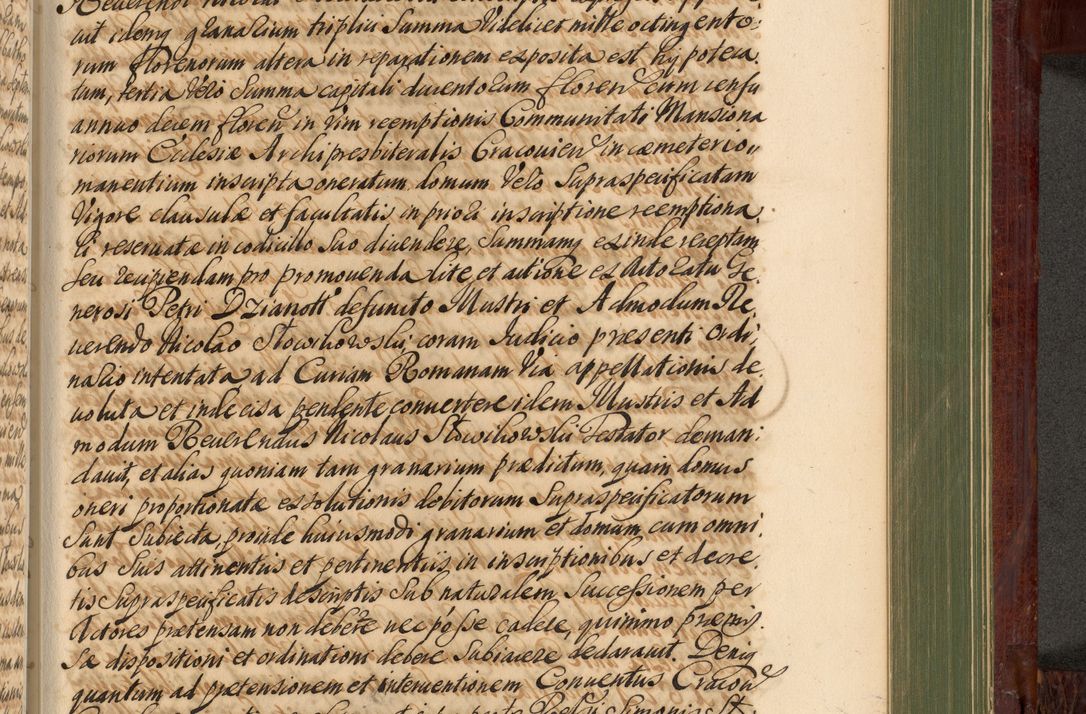 uit idemq granarium triplici Summa Videlicet mille octingento:
rum florenorum altera in reparationem exposita est hypoteca,
tum, tertia Vero Summa capitali ducentorum floren cum censu
annuo decem floren in Vim reemptionis Communitati Mansiona
riorum Ecclesiæ Archipresbiteralis Cracouien in cæmeterio
manentium inscripta oneratum, domum Vero Supraspecificatam
Vigore clausulæ et facultatis in priori inscriptione reemptiona,
li reseruatæ in codicillo suo diuendere, Summamq exinde receptam
seu recipiendam pro promouenda lite et actione ex Actoratu Ge,
nerosi Petri Dzianott defuncto Illustri et Admodum Re
uerendo Nicolao Słowikowski coram Iudicio præsenti Ordi,
nario intentata ad Curiam Romanam Via appellationis de,
uoluta et indecisa pendente conuertere idem Illustris et Ad
modum Reuerendus Nicolaus Słowikowski Testator deman:
dauit, et alias quoniam tam granarium prædictum, quam domus
oneri proportionatæ exsolutionis debitorum Supraspecificatorum
Sunt Subiecta, proinde huiusmodi granarium et domum cum omni:
bus Suis attinentiis et pertinentiis in inscriptionibus et decre,
tis Supraspecificatis descriptis Sub naturalem Successionem per
Actores prætensam non debere nec posse cadere, quinimo præmis,
sæ dispositioni et ordinationi debere Subiacere declarauit. Deniq
quantum ad prætensionem et interuentionem Conuentus Cracou